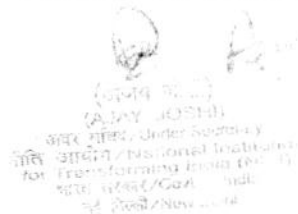 (अजय
(AJAY JOSHI)
अवर सचिव/Under Secretary
नीति आयोग/National Institution
for Transforming India
भारत सरकार/Govt. India
नई दिल्ली/New